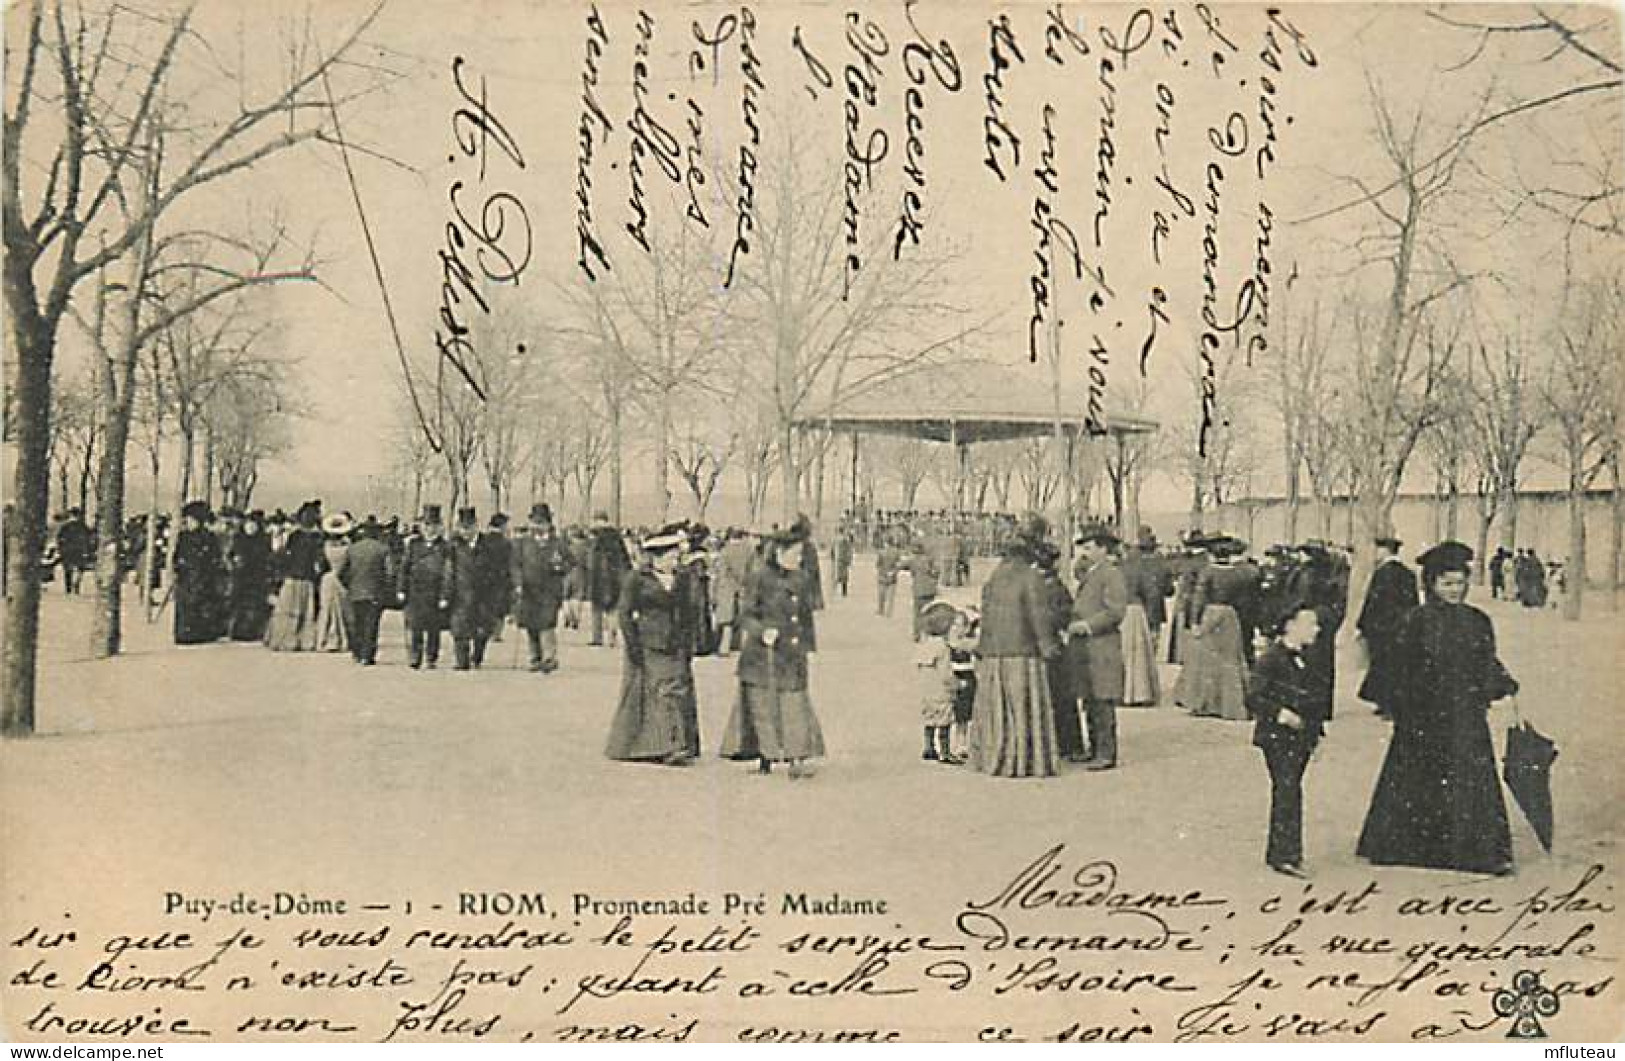 Puy-de-Dôme — 1 - RIOM, Promenade Pré Madame
Madame, c'est avec plai
sir que je vous rendrai le petit service demandé; la vue générale
de Riom n'existe pas; quant à celle d'Issoire je ne l'ai pas
trouvée non plus, mais comme ce soir je vais à
Issoire même
je demanderai
si on l'a et
Demain je vous
les enverrai
toutes
Recevez
Madame
l'
assurance
de mes
meilleurs
sentiments
mfluteau